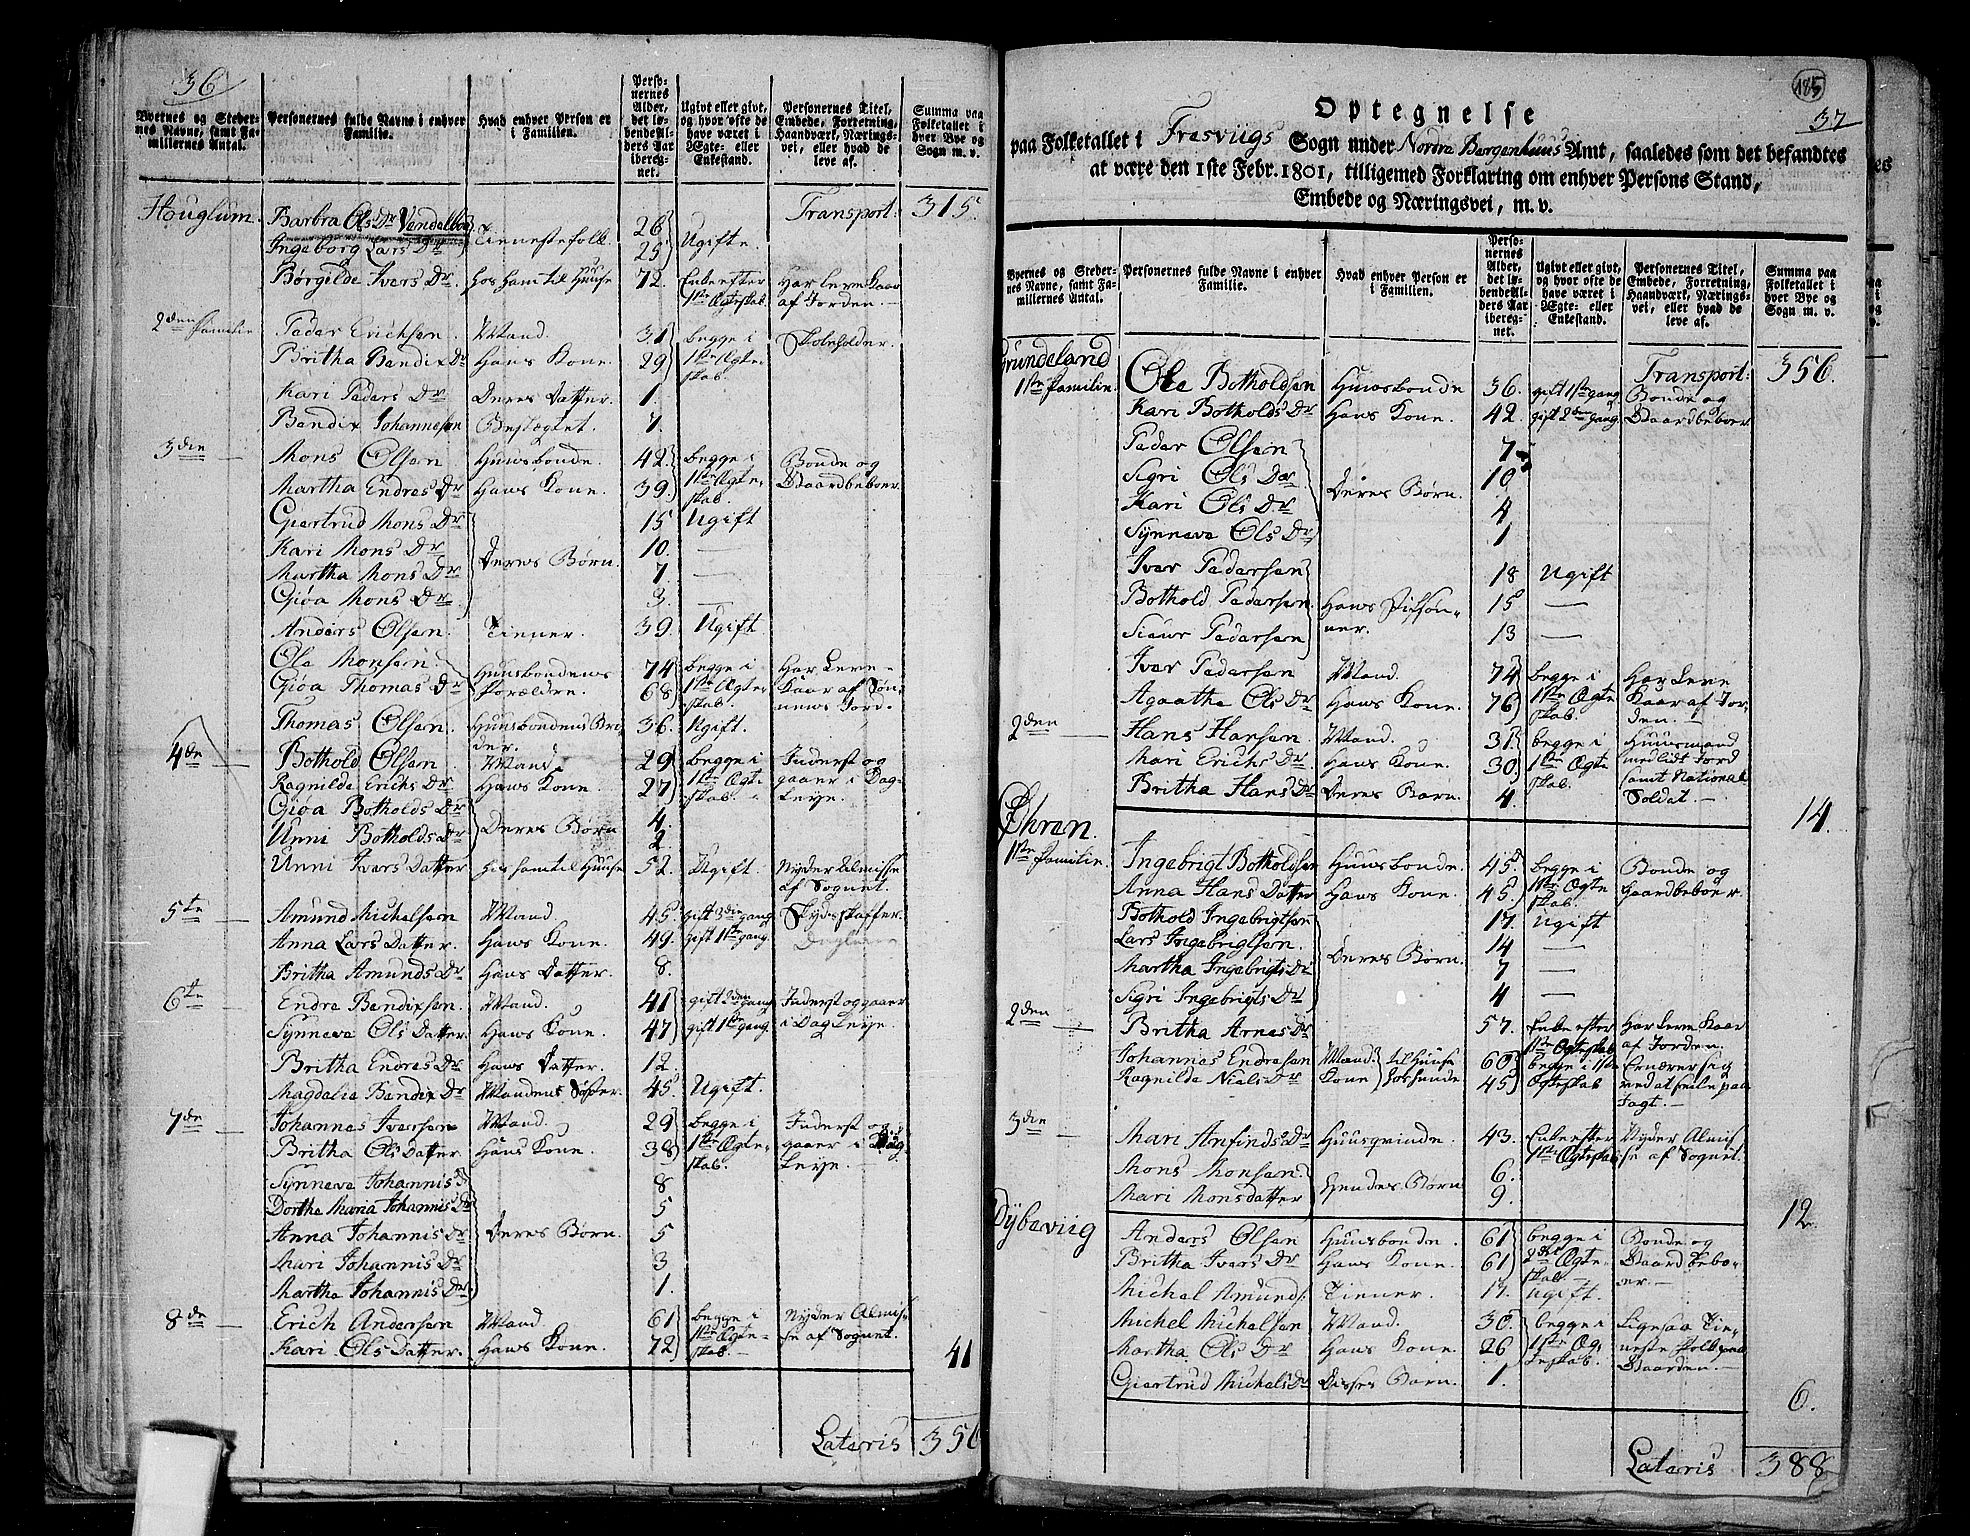 36
Byernes og Stedernes Navne, samt Familiernes Antal. | Personernes fulde Navne i enhver Familie. | Hvad enhver Person er i Familien. | Personernes Alder, det løbende Alders Aar iberegnet. | Ugivt eller givt, og hvor ofte de have været i Ægte- eller Enkestand. | Personernes Titel, Embede, Forretning, Haandværk, Næringsvei, eller hvad de leve af. | Summa paa Folketallet i hver Bye og Sogn m. v.
Transport: 315.
Houglum. Barbra Ols Dr Vendelboe Tienestefolk 26 Ugifte.
Ingeborg Lars Dr 25
Børgilde Ivers Dr hos ham til Huuse 72. Enke efter 1ste Ægteskab. Har leve Kaar af Jorden.
2den Familie Peder Erichsen Mand. 31 begge i 1ste Ægteskab. Skoleholder.
Britha Bendix Dr Hans Kone. 29
Kari Peders Dr Deres Datter. 1.
Bendix Johannesen Beslægtet. 7.
3die Mons Olsen Huusbonde. 42. begge i 1ste Ægteskab. Bonde og Gaardbeboer.
Martha Endres Dr Hans Kone. 39.
Giertrud Mons Dr 15 Ugift
Kari Mons Dr Deres Børn. 10. —
Martha Mons Dr 7 —
Giøa Mons Dr 3. —
Anders Olsen. Tiener. 39. Ugift.
Ole Monsen. Huusbondens Forældre. 74 begge i 1ste Ægteskab. Har Levekaar af Sønnens Jord.
Giøa Thomas Dr 68
Thomas Olsen. Huusbondens Broder. 36. Ugift.
4de Bothold Olsen Mand. 29 begge i 1ste Ægteskab. Inderst og gaaer i Dagleye.
Ragnilde Erichs Dr Hans Kone. 27
Giøa Botholds Dr Deres Børn 4.
Unni Botholds Dr 2.
Unni Ivers Datter hos ham til Huuse 52. Ugift. Nyder Almisse af Sognet.
5te Amund Michelsen Mand. 45. gift 3die gang Skydsskaffer.
Anna Lars Datter. Hans Kone. 49. gift 1ste gang.
Britha Amunds Dr Hans Datter. 8.
6te Endre Bendixsen. Mand. 41 gift 2den gang Inderst og gaaer i Dagleye.
Synneve Ols Datter. Hans Kone. 47 gift 1ste gang.
Britha Endres Dr Hans Datter. 12.
Magdalie Bendix Dr Mandens Søster. 45. Ugift.
7de Johannes Iversen Mand. 29 begge i 1ste Ægteskab. Inderst og gaaer i Dagleye.
Britha Ols Datter. Hans Kone. 38
Synneve Johannis Dr 8
Dorthe Maria Johannis Dr 5
Anna Johannis Dr Deres Børn. 5
Mari Johannis Dr 3
Martha Johannis Dr 1.
8de Erich Andersen Mand. 61 begge i 1ste Ægteskab. Nyder Almisse af Sognet.
Kari Ols Datter. Hans Kone. 72
41
Lateris 356
185
37
Optegnelse
paa Folketallet i Fresviigs Sogn under Nordre Bergenhuus Amt, saaledes som det befandtes
at være den 1ste Febr. 1801, tilligemed Forklaring om enhver Persons Stand,
Embede og Næringsvei, m. v.
Byernes og Stedernes Navne, samt Familiernes Antal. | Personernes fulde Navne i enhver Familie. | Hvad enhver Person er i Familien. | Personernes Alder, det løbende Alders Aar iberegnet. | Ugivt eller givt, og hvor ofte de have været i Ægte- eller Enkestand. | Personernes Titel, Embede, Forretning, Haandværk, Næringsvei, eller hvad de leve af. | Summa paa Folketallet i hver Bye og Sogn m. v.
Transport: 356.
Grundeland
1ste Familie. Ole Botholdsen Huusbonde 36. gift 1ste gang Bonde og Gaardbeboer.
Kari Botholds Dr Hans Kone. 42. gift 2den gang.
Peder Olsen 7
Sigri Ols Dr Deres Børn. 10
Kari Ols Dr 4
Synneve Ols Dr 1
Iver Pedersen 18 Ugift
Bothold Pedersen. Hans Stifsønner. 15 —
Siur Pedersen 13 —
Iver Pedersen Mand. 74 begge i 1ste Ægteskab. Har Leve Kaar af Jorden.
Agaathe Ols Dr Hans Kone. 76
2den Hans Hansen Mand. 31. begge i 1ste Ægteskab. Huusmand med lidt Jord samt National Soldat.
Mari Erichs Dr Hans Kone. 30.
Britha Hans Dr Deres Barn. 4.
14.
Øhren.
1ste Familie. Ingebrigt Botholdsen Huusbonde. 45. begge i 1ste Ægteskab. Bonde og Gaardbeboer.
Anna Hans Datter Hans Kone. 45.
Bothold Ingebrigtsen 17. Ugift
Lars Ingebrigtsen. Deres Børn. 14 —
Martha Ingebrigts Dr 7 —
Sigri Ingebrigts Dr 4 —
2den Britha Arnes Dr 57. Enke efter 1ste Ægteskab Har Leve Kaar af Jorden.
Johannes Endresen Mand til Huuse 60 begge i 1ste Ægteskab Ernærer sig ved at
Ragnilde Niels Dr Kone hos hende 45
3die Mari Anfinds Dr Huusqvinde. 43. Enke efter 1ste Ægteskab Nyder Almisse af Sognet.
Mons Monsen Hendes Børn 6.
Mari Monsdatter 9.
12.
Dybeviig Anders Olsen Huusbonde. 61 begge i 2det Ægteskab. Bonde og Gaardbeboer.
Britha Ivers Dr Hans Kone. 61
Michel Amunds: Tiener. 17. Ugift.
Michel Michelsen Mand. 30. begge i 1ste Ægteskab. Ligesaa Tienestefolk paa Gaarden.
Martha Ols Dr Hans Kone. 26
Giertrud Michels Dr Disses Barn. 1.
6.
Lateris 388